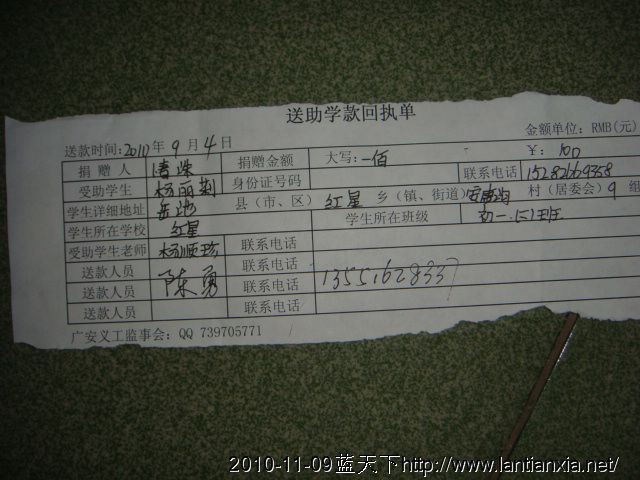 送助学款回执单
送款时间:2010年9月4日 金额单位:RMB(元)
捐赠人 清荣 捐赠金额 大写:一佰 ¥:100
受助学生 杨丽 身份证号码 联系电话 15282669358
学生详细地址 岳池 县(市、区) 红星 乡(镇、街道) 村(居委会)9组
学生所在学校 红星 学生所在班级 初一.(三)班
受助学生老师 杨顺珍 联系电话
送款人员 陈勇 联系电话 13551628337
送款人员 联系电话
送款人员 联系电话
广安义工监事会:QQ 739705771
2010-11-09蓝天下http://www.lantianxia.net/